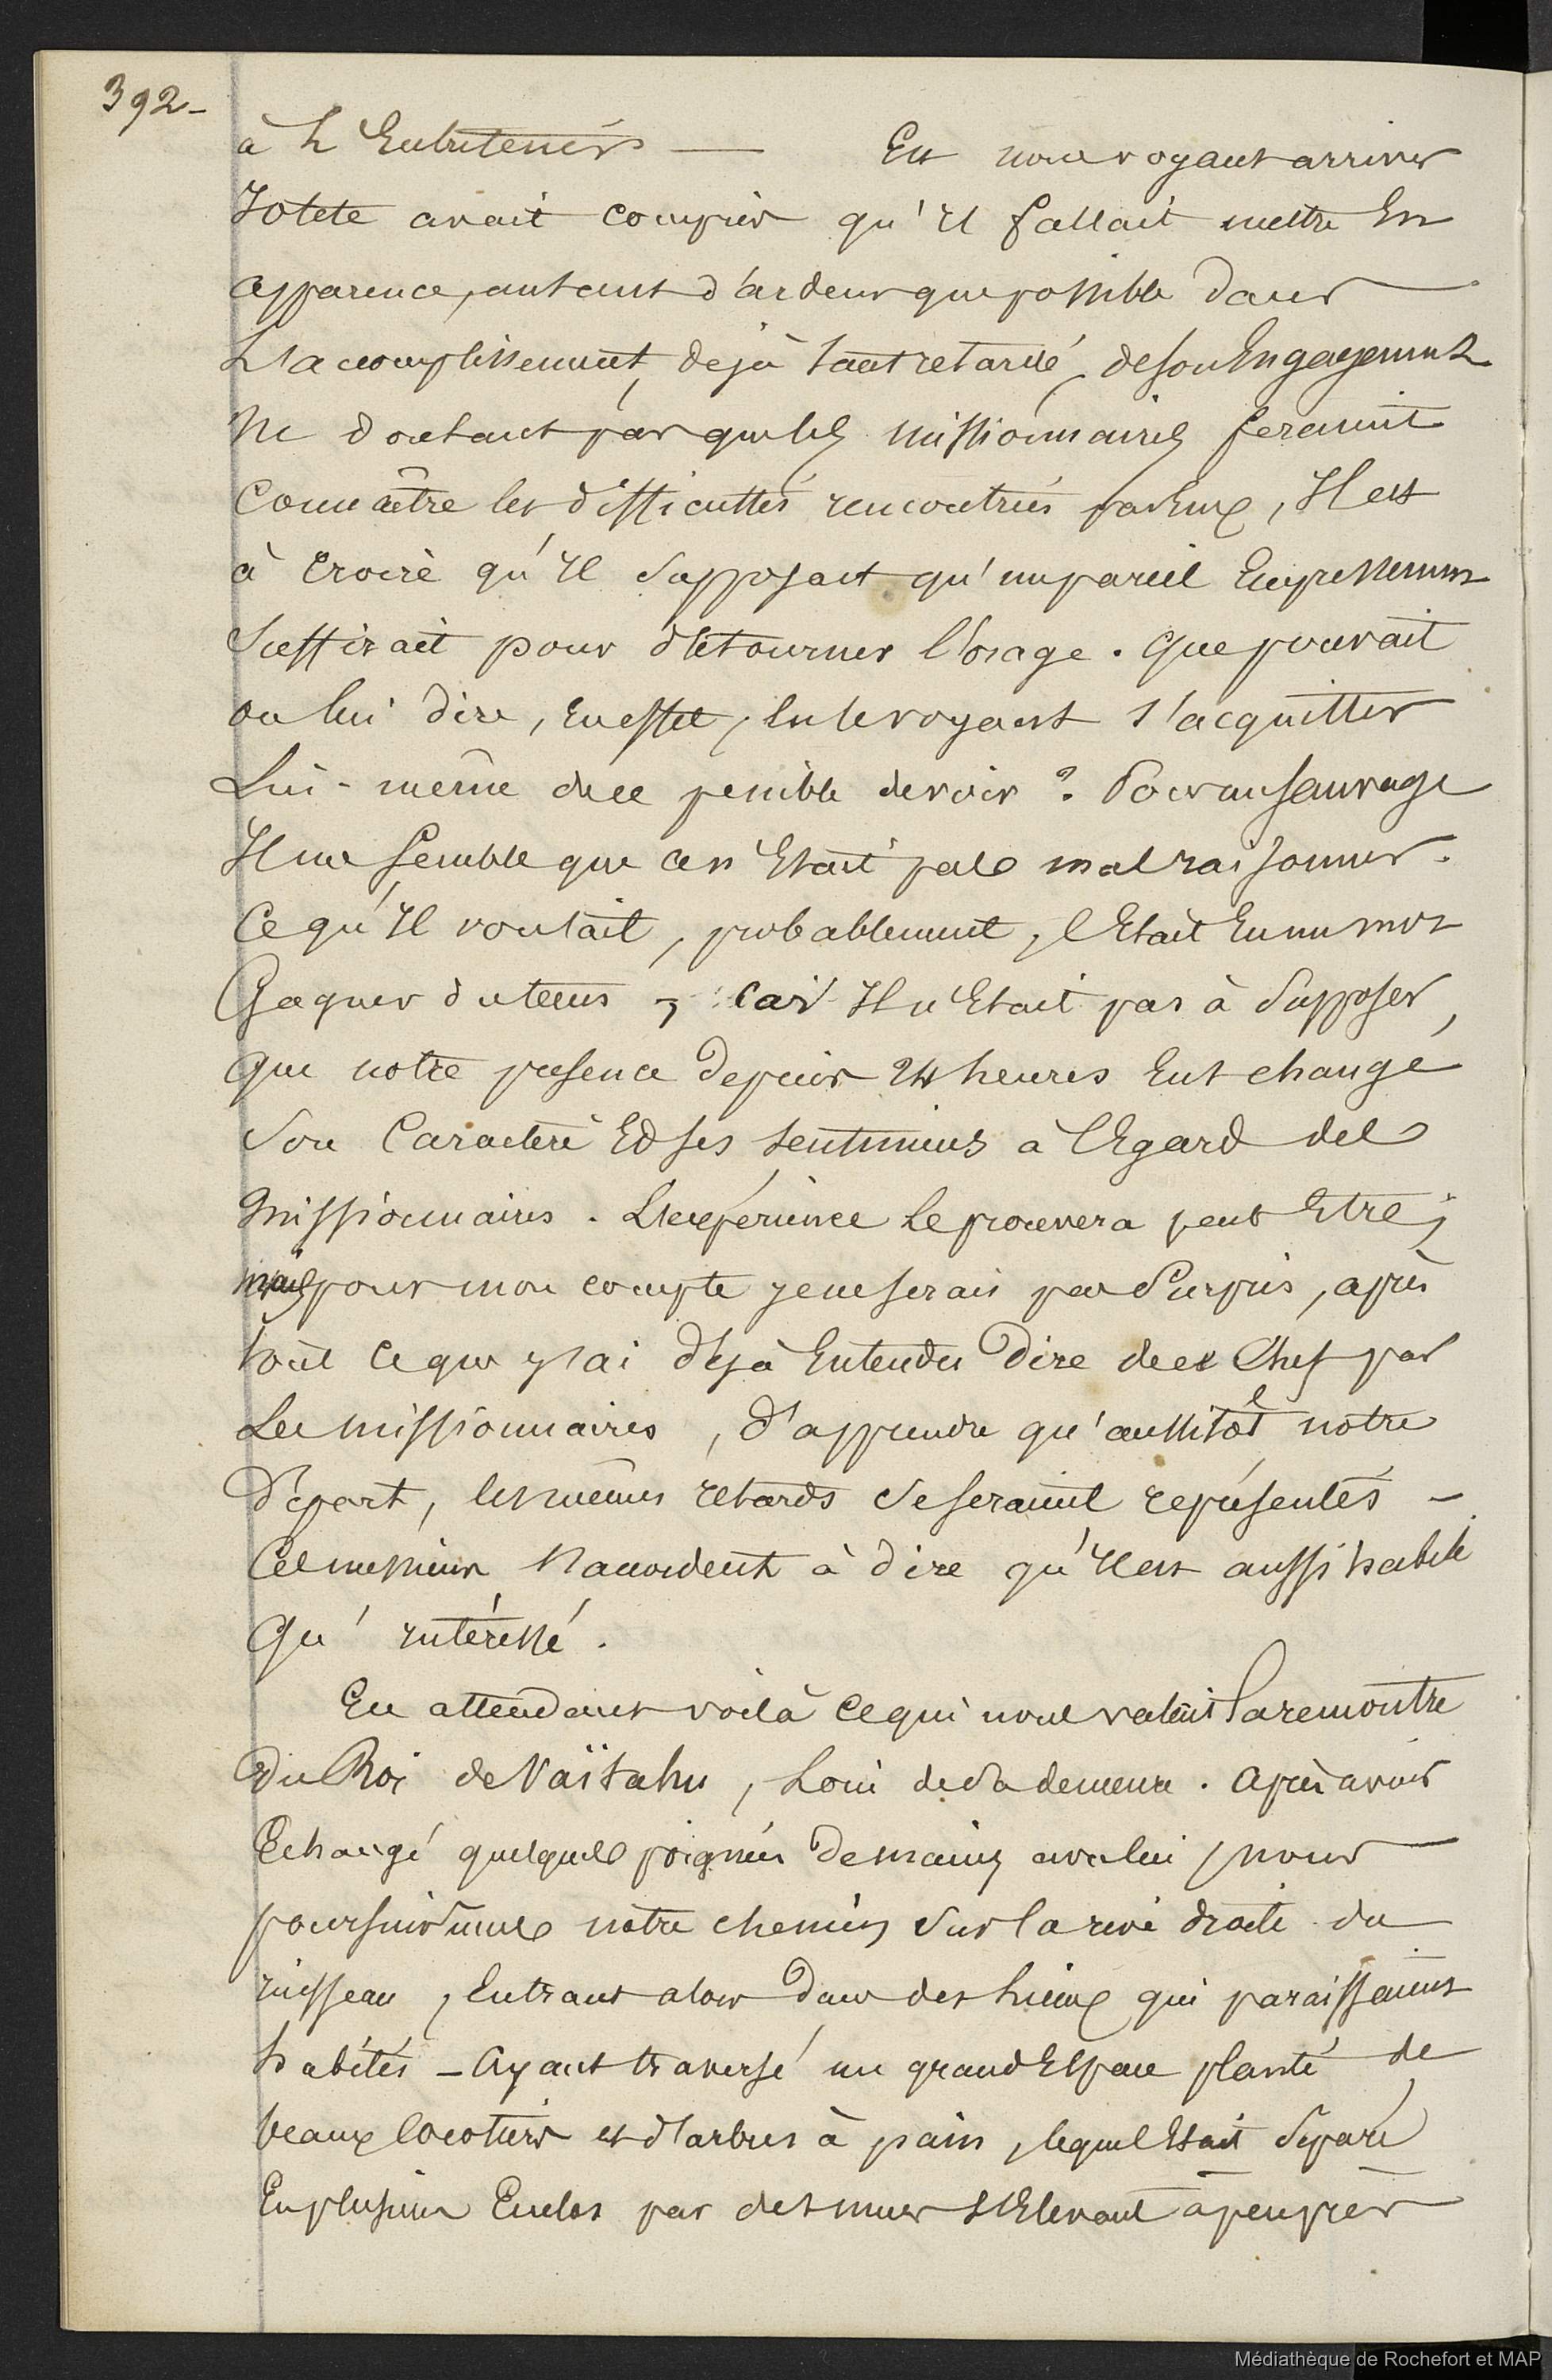 392-
à L'Entretenir — En nous voyant arriver
Iotete avait compris qu'il fallait mettre En
apparence, autant d'ardeur que possible dans
L'accomplissement, dejà tant retardé, de son Engagement
Ne doutant pas que les missionnaires feraient
Connaître les difficultés rencontrées par Eux, Il est
à croire qu'Il Supposait qu'un pareil Empressement
Suffirait pour détourner l'orage. Que pouvait
on lui dire, En effet, En le voyant s'acquitter
Lui-même de ce penible devoir ? Pour un Sauvage
Il me Semble que ce n'Etait pas mal raisonner.
Ce qu'Il voulait, probablement, c'Etait En un mot
Gagner du tems ; car Il n'Etait pas à Supposer,
que notre presence Depuis 24 heures Eut changé
Son Caractère Et Ses sentimens à l'Egard des
Missionnaires. L'expérience Le prouvera peut Etre ;
mais pour mon compte je ne serais pas Surpris, après
tout ce que j'ai déjà Entendu Dire de ce Chef par
Les missionnaires, d'apprendre qu'aussitôt notre
Départ, les mêmes retards Se seraient représentés -
Ces messieurs s'accordent à dire qu'Il est aussi habile
Qu'intéressé.
En attendant voilà ce qui nous valait La rencontre
Du Roi de Vaïtahu, Loin de Sa demeure. Après avoir
Echangé quelques poignées De mains avec lui, nous
poursuivîmes notre chemin Sur la rive droite du
ruisseau, Entrant alors Dans des Lieux qui paraissaient
habités - Ayant traversé un grand Espace planté de
beaux Cocotiers et d'arbres à pain, lequel Etait Séparé
En plusieurs Enclos par des murs s'Elevant à peu près
Médiathèque de Rochefort et MAP